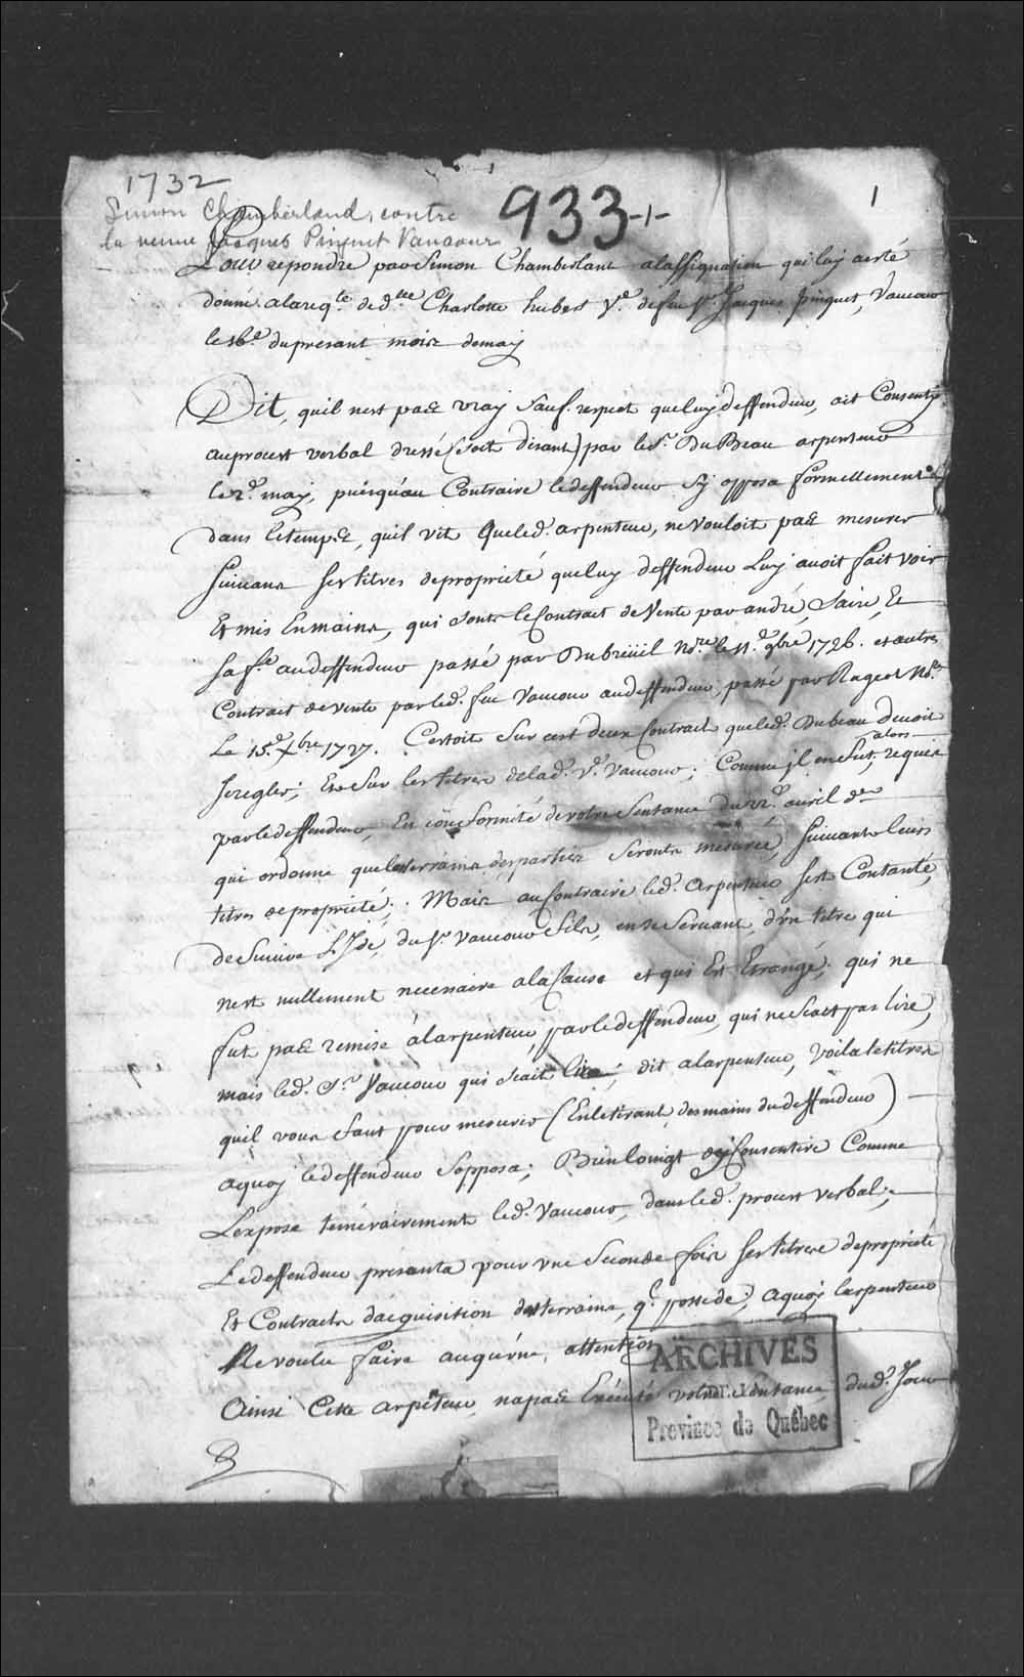 1732
933-+-
1
Simon Chamberland, contre
la veuve Jacques Pinguet Vaucour
Pour repondre par Simon Chamberlant alassignation quiluy aesté
donné alareqte. de dlle Charlotte hubert Ve. defeu Sr. Jacques pinguet, Vaucour
le16e dupresant mois demay
Dit, quil nest pas vray sauf respect queluy deffendeur, ait Consenty
auprocest verbal dressé (soit disant) par leSr. DuBeau arpenteur
le2e. may, puisquau Contraire ledeffendeur sy opposa formellement
dans letemps, quil vit Queled. arpenteur, ne Vouloit pas mesurer
suivant ses titres depropriété queluy deffendeur Luy avoit fait voir
Et mis Enmains, qui sont leContract deVente par andré, Et
sa fe. audeffendeur passé par Dubreüil Nore. le11.e 9bre 1726. et autre
Contract devente parled. feu Vaucour audeffendeur, passé par Rageot Nore.
Le 15.e Xbre 1727. Cestoit Sur cest deux Contract queled. Dubeau devoit
alors
seregler; Et Sur lestitres delad. Ve. Vaucour; Comme jl enfut, requis
parledeffendeur, En conformité devotre Sentance du 22e. avril der
qui ordonne quelesterrains desparties seronts mesurés, suivants leurs
titres depropriété; Mais auContraire led. arpenteur sest Contanté,
deSuivre L'Jdé, du Sr. Vaucour fils, en se servant, d'vn titre qui
nest nullement necessaire alaCause et qui Est Etrangé, qui ne
fut pas remise àlarpenteur, parledeffendeur, qui nesçait pas lire,
mais led. Sr. Vaucour qui sçait lire, dit alarpenteur, voila letitres
quil vous faut pour mesurer (Enletirant desmains dudeffendeur)
aquoy ledeffendeur sopposa; Bienloingt dyConsentire Comme
Lexpose temérairement led. Vaucour, dansled. procest verbal;
Ledeffendeur presanta pour vne seconde fois ses titres depropriété
Et Contracts dacquisition desterrains, ql. possede, aquoy larpenteur
Ne voulu faire aucune, attention
Ainsi Cette arpenteur, napas Executé votre Sentance dud. Jour
ARCHIVES
Province de Québec